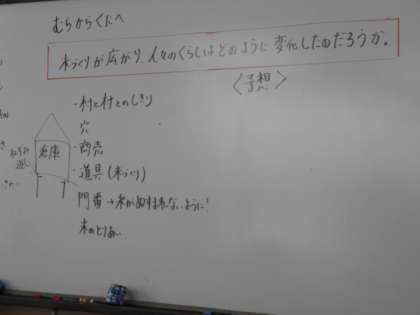 むらからくにへ
米づくりが広がり、人々のくらしはどのように変化したのだろうか。
〈予想〉
・村と村とのしきり
穴
・商売
倉庫
ねずみ
返し
・道具(米づくり)
門番→米がぬすまれないように!
米のとりあい